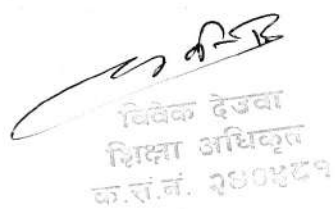 विवेक देउवा
शिक्षा अधिकृत
क.सं.नं. २४०५८९